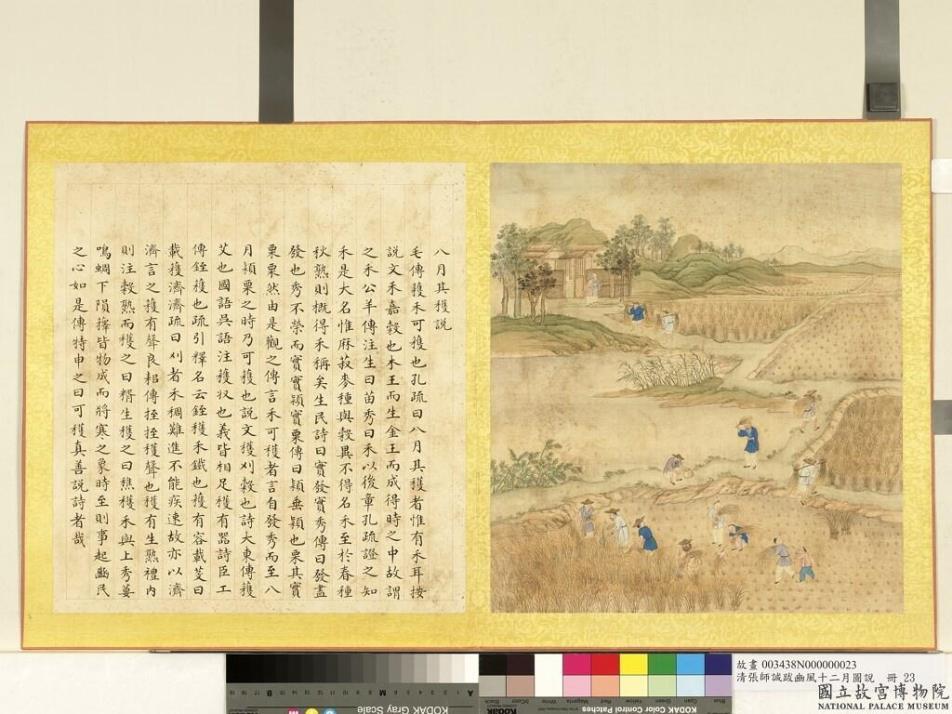 八月其穫說
毛傳穫禾可穫也孔疏曰八月其穫者惟有禾耳按
說文禾嘉穀也木王而生金王而成得時之中故謂
之禾公羊傳注生曰苗秀曰禾以後章孔疏證之知
禾是大名惟麻菽麥種與穀異不得名禾至於春種
秋熟則概得禾稱矣生民詩曰實發實秀傳曰發盡
發也秀不榮而實實穎實栗傳曰穎垂穎也栗其實
栗栗然由是觀之傳言禾可穫者言自發秀而至八
月穎栗之時乃可穫也說文穫刈穀也詩大東傳穫
艾也國語吳語注穫收也義皆相足穫有器詩臣工
傳銍穫也疏引釋名云銍穫禾鐵也穫有容載芟曰
載穫濟濟疏曰刈者禾稠難進不能疾速故亦以濟
濟言之穫有聲良耜傳挃挃穫聲也穫有生熟禮內
則注穀熟而穫之曰稰生穫之曰穛穫禾與上秀葽
鳴蜩下隕蘀皆物成而將寒之象時至則事起豳民
之心如是傳特申之曰可穫真善說詩者哉
故畫 003438N000000023
清張師誠跋豳風十二月圖說 冊 23
國立故宮博物院
NATIONAL PALACE MUSEUM
KODAK Gray Scale
KODAK Color Control Patches